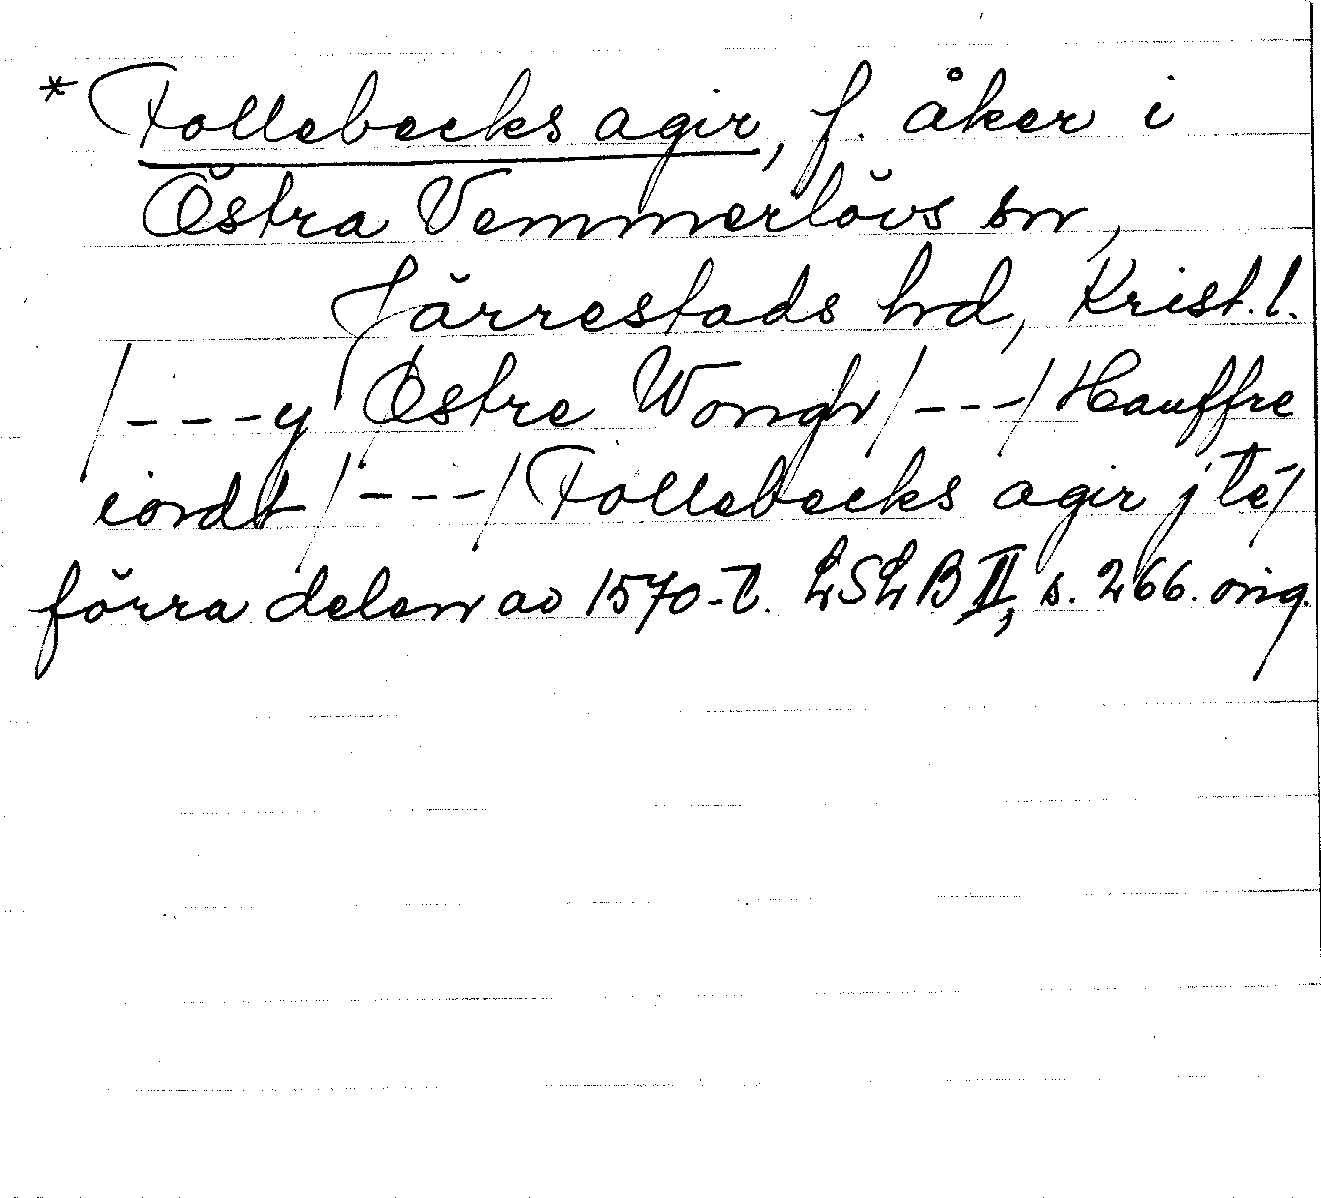 * Follebecks agir, f. åker i
Östra Vemmerlövs sn,
Järrestads hd, Krist. l.
/---y Østre Wongh/---/Hauffre
iordt/---/Follebecks agir j te/
förra delen av 1570-t. LSLB II, s. 266. orig.